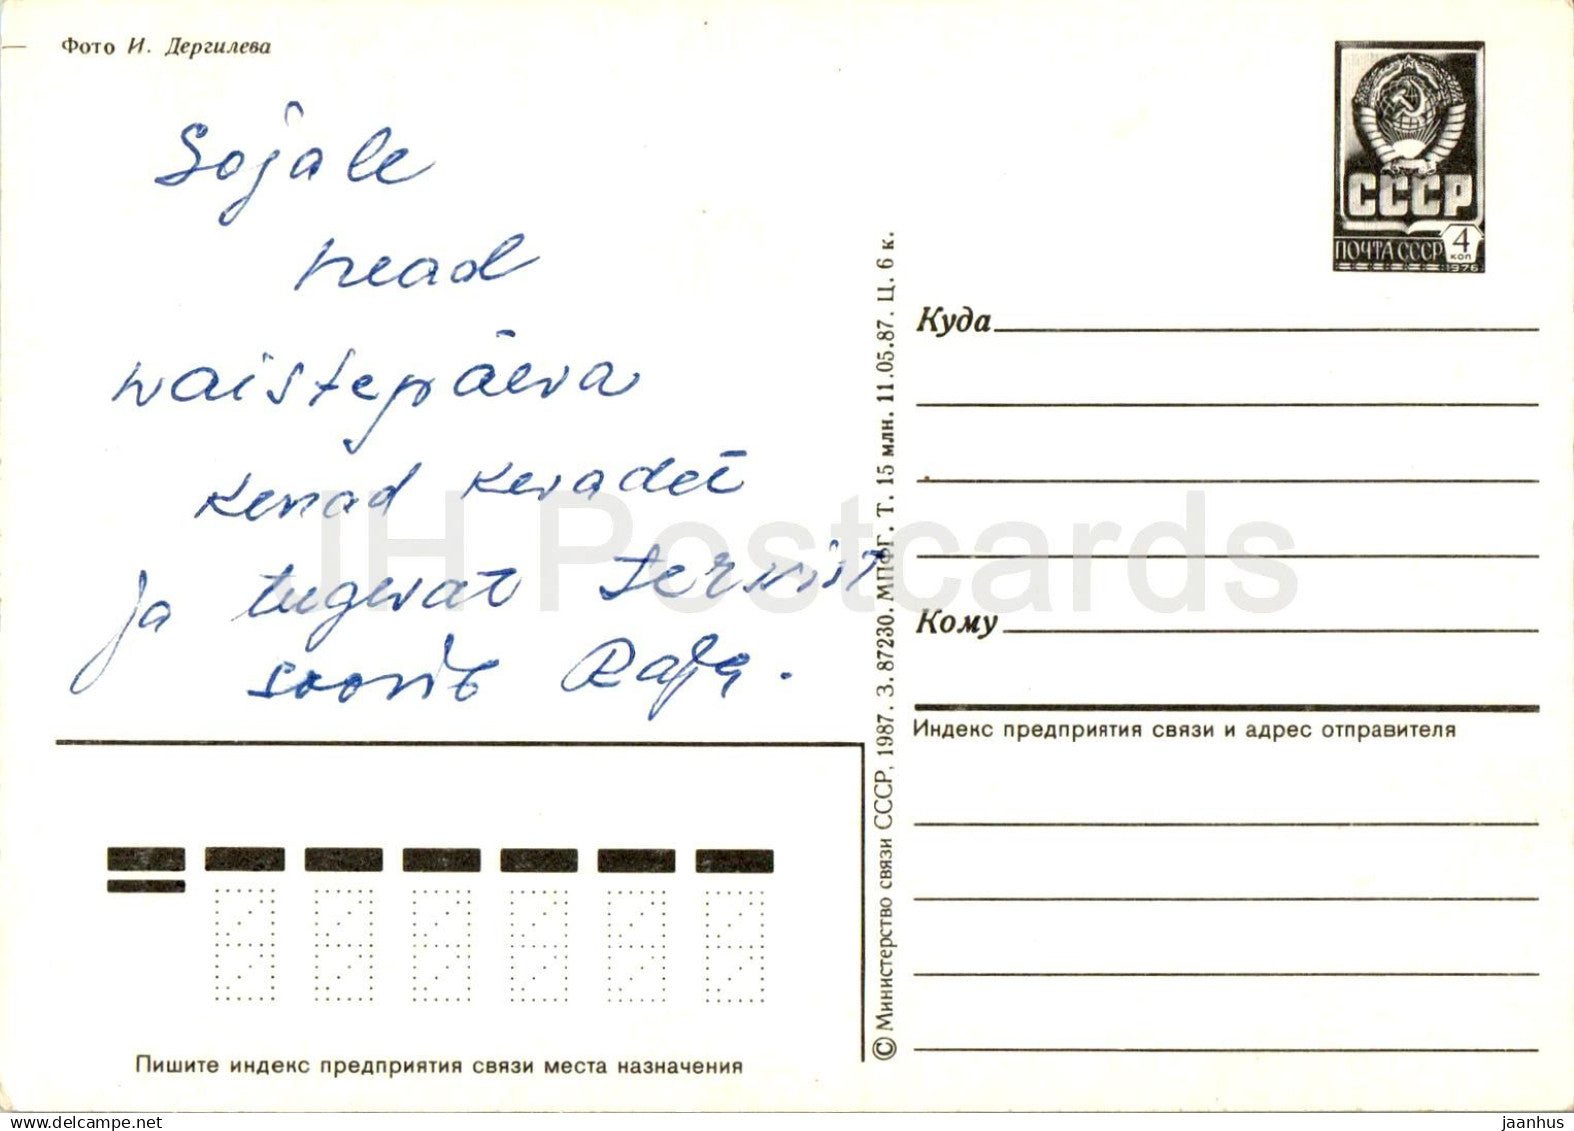 Фото И. Дергилева
Sojale
head
naistepäeva
kenad kevadet
ja tugevat tervist
soovib Raja.
Пишите индекс предприятия связи места назначения
© Министерство связи СССР, 1987. З. 87230. МПФГ. Т. 15 млн. 11.05.87. Ц. 6 к.
СССР
ПОЧТА СССР 4
КОП
1976
Куда
Кому
Индекс предприятия связи и адрес отправителя
IH Postcards
jaanhus